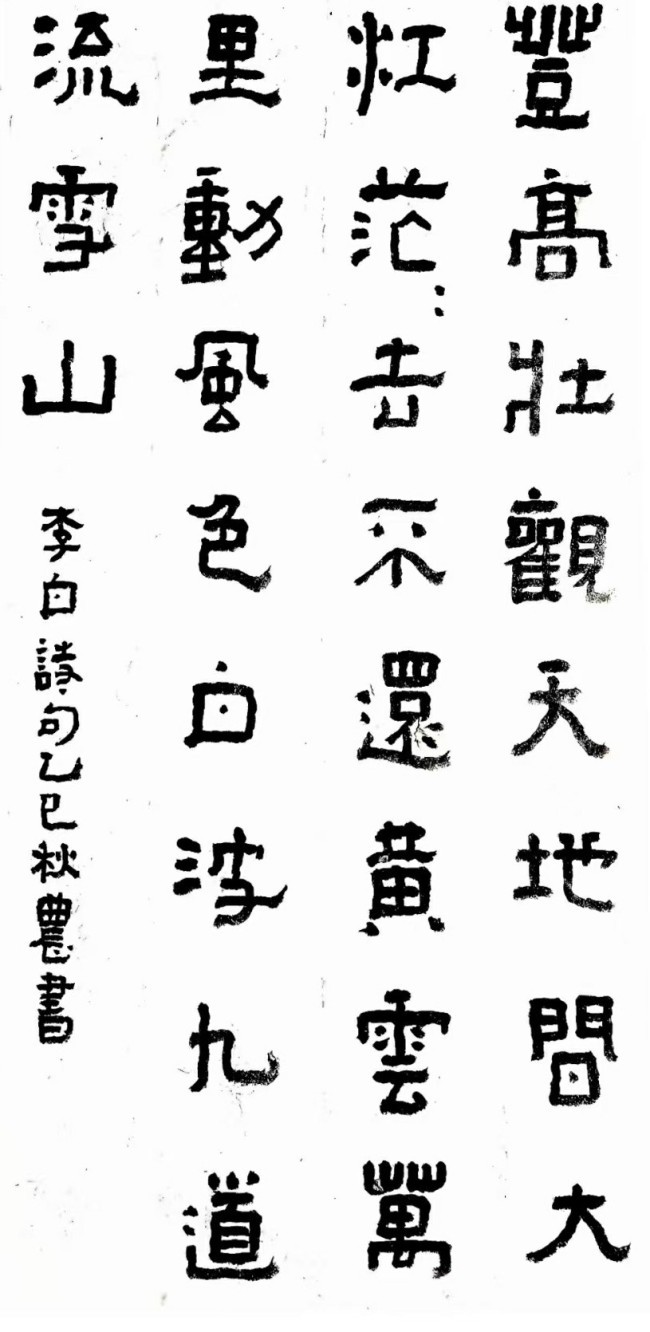 登高壯觀天地間大
江茫：去不還黃雲萬
里動風色白波九道
流雪山
李白詩句乙巳秋農書